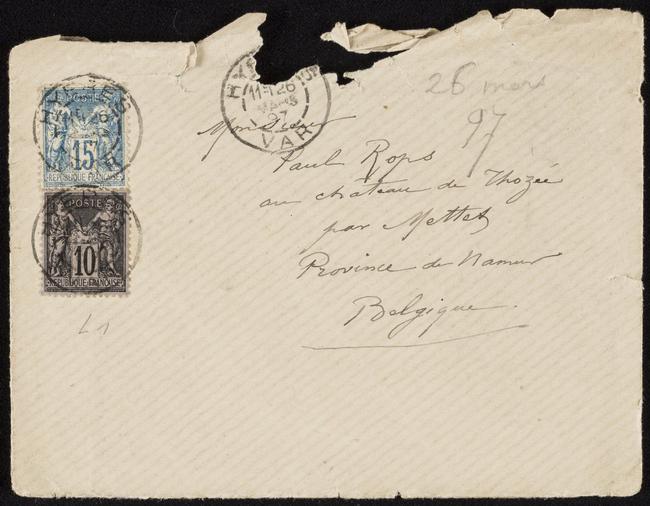 POSTES
15
REPUBLIQUE FRANÇAISE
POSTES
10
REPUBLIQUE FRANÇAISE
26
MARS
97
VAR
26 mars
97
Monsieur
Paul Rops
au château de Thozée
par Mettet
Province de Namur
Belgique.
L1